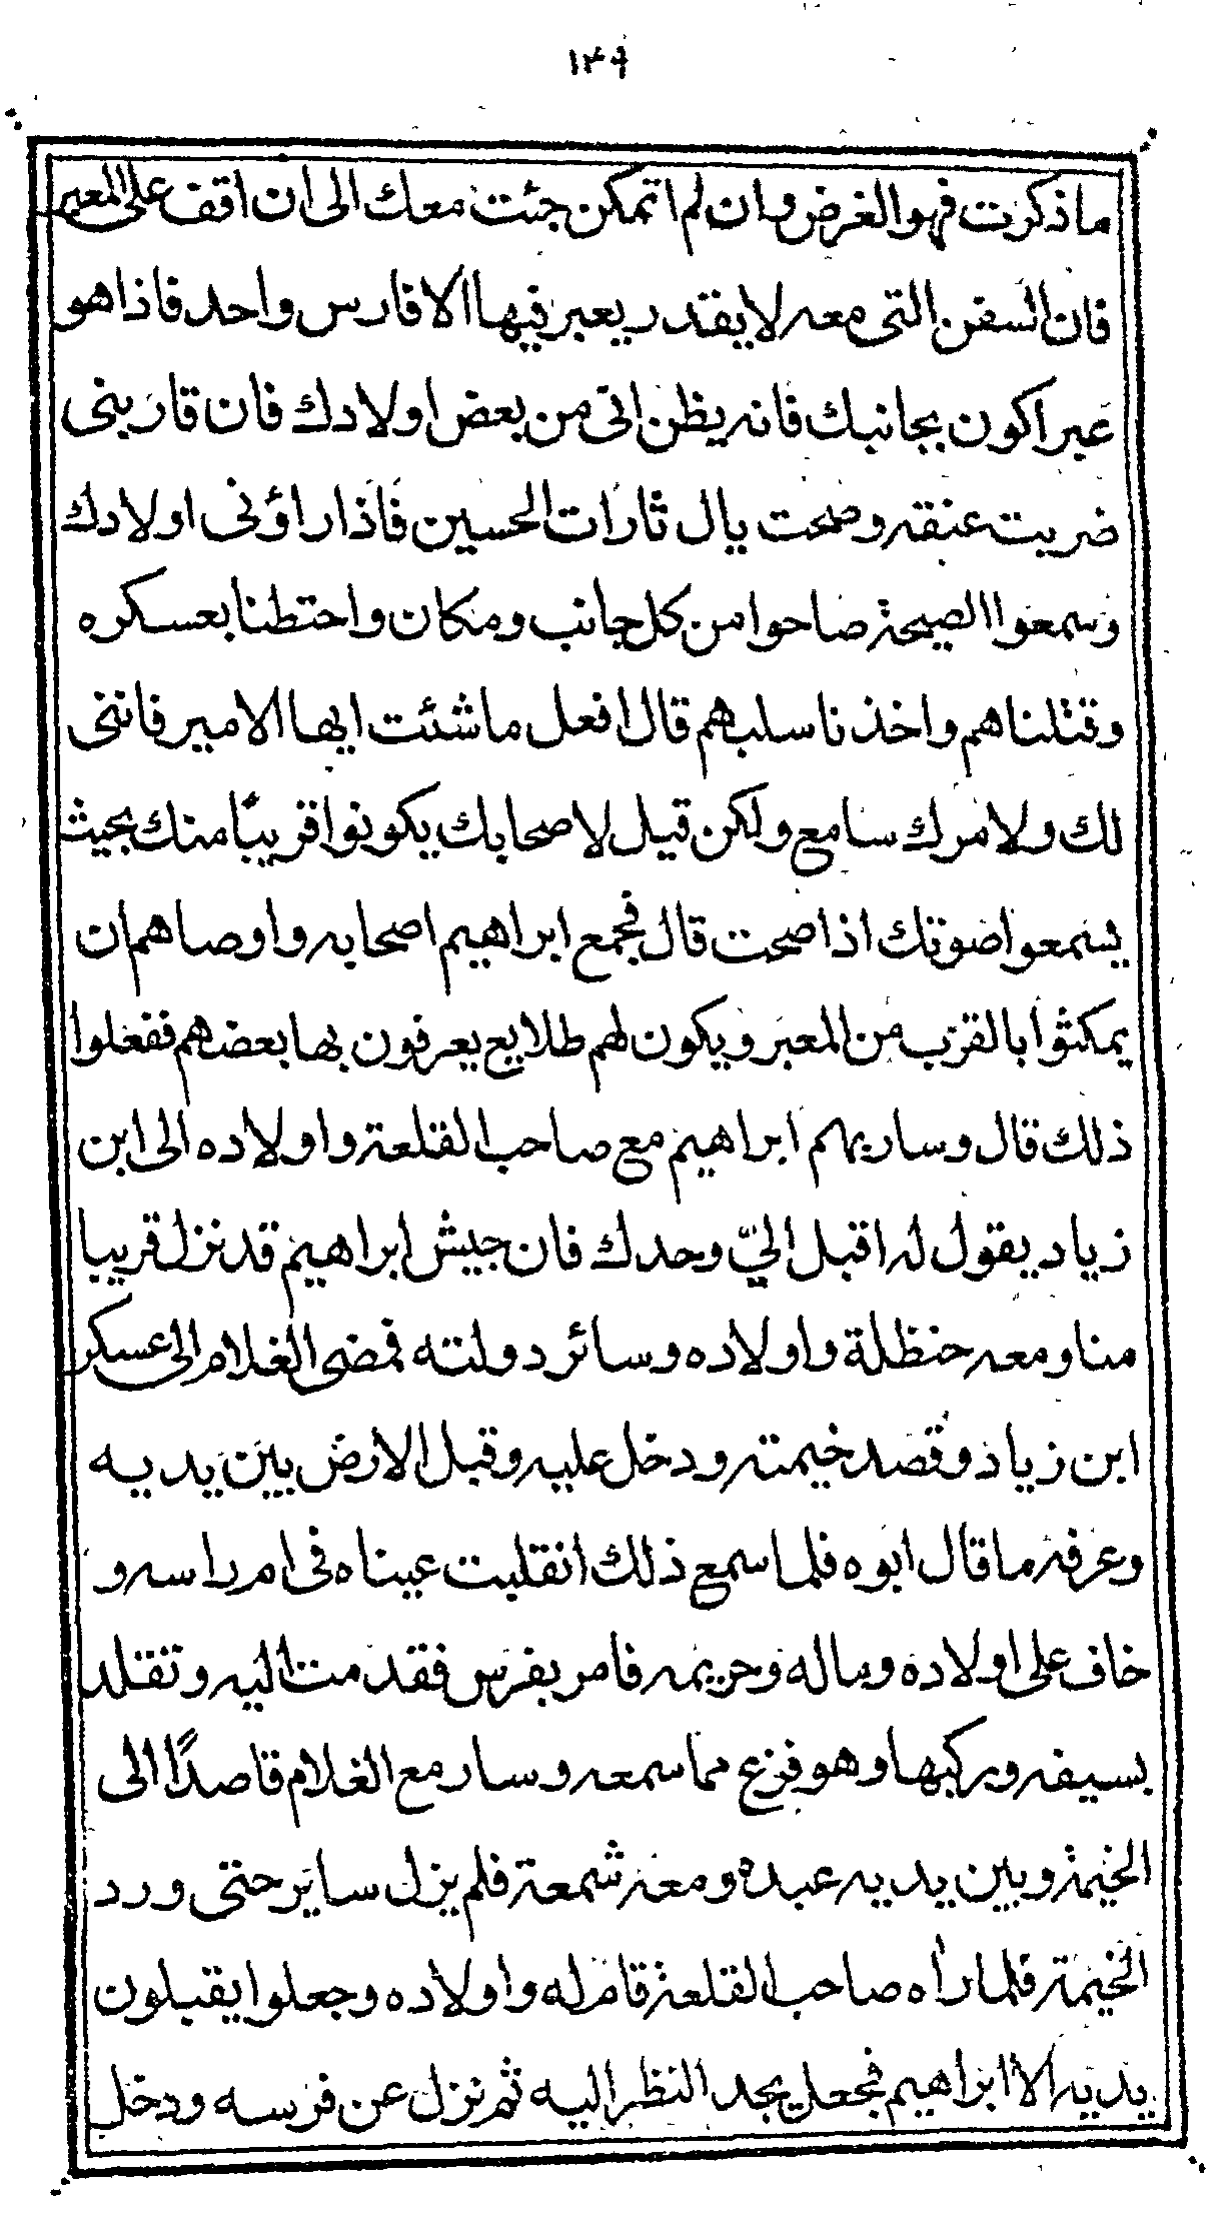 ١٣٩
ما ذكرت فهو الغرض وان لم اتمكن جئت معك الى ان اقف على المعبر
فان السفن التى معه لا يقدر يعبر فيها الا فارس واحد فاذا هو
عبر اكون بجانبك فانه يظن انى من بعض اولادك فان قاربنى
ضربت عنقه وصحت يال ثارات الحسين فاذا راؤنى اولادك
وسمعوا الصيحة صاحوا من كل جانب ومكان واحتطنا بعسكره
وقتلناهم واخذنا سلبهم قال افعل ما شئت ايها الامير فاننى
لك ولامرك سامع ولكن قيل لاصحابك يكونوا قريبًا منك بحيث
يسمعوا صوتك اذا صحت قال فجمع ابراهيم اصحابه واوصاهم ان
يمكثوا بالقرب من المعبر ويكون لهم طلايع يعرفون بها بعضهم ففعلوا
ذلك قال وسار بهم ابراهيم مع صاحب القلعة واولاده الى ابن
زياد يقول له اقبل اليّ وحدك فان جيش ابراهيم قد نزل قريبا
منا ومعه حنظلة واولاده وسائر دولته فمضى الغلام الى عسكر
ابن زياد وقصد خيمته ودخل عليه وقبل الارض بين يديه
وعرفه ما قال ابوه فلما سمع ذلك انقلبت عيناه فى ام راسه و
خاف على اولاده وماله وحريمه فامر بفرس فقدمت اليه وتقلد
بسيفه وركبها وهو فزع مما سمعه وسار مع الغلام قاصدًا الى
الخيمة وبين يديه عبده ومعه شمعة فلم يزل ساير حتى ورد
الخيمة فلما راه صاحب القلعة قام له واولاده وجعلوا يقبلون
يديه الا ابراهيم فجعل يجد النظر اليه ثم نزل عن فرسه ودخل